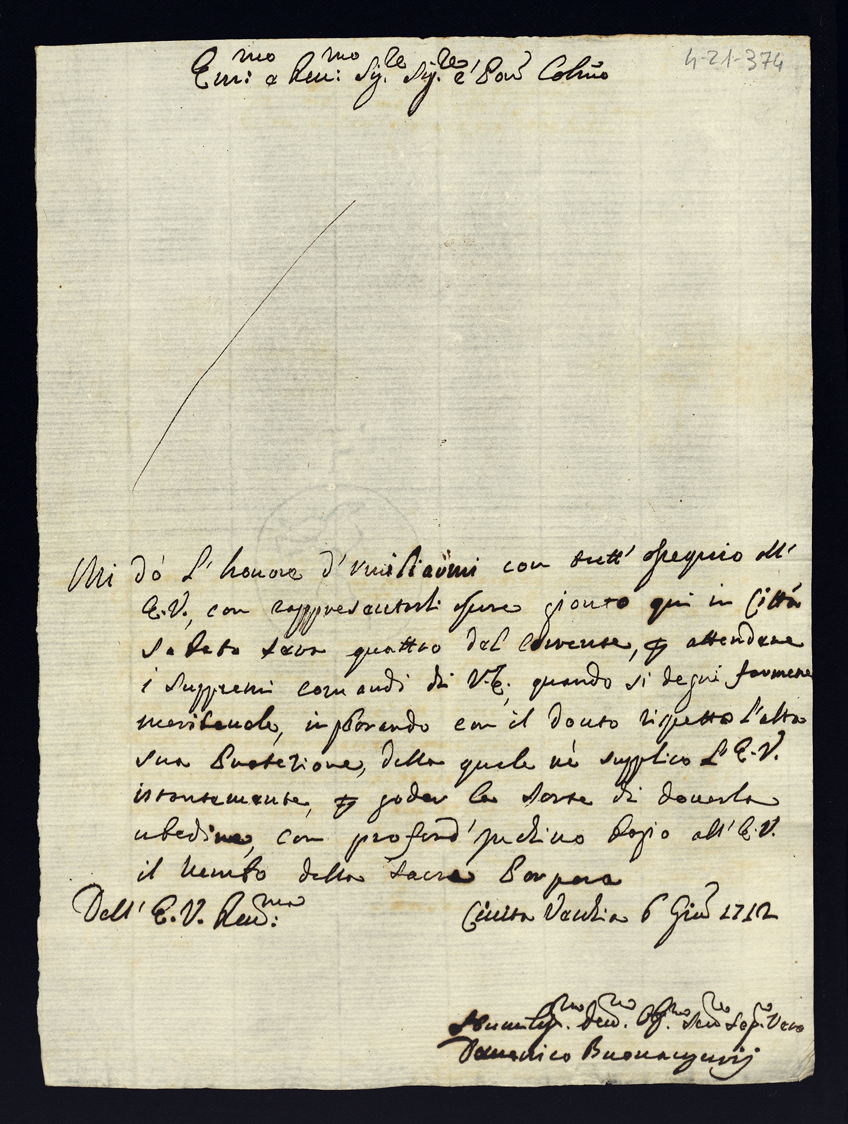 4-21-374
Em:mo e Reu:mo Sig.re Sig.re e Pad Colmo
Mi dò l'honore d'vmiliarmi con tutt' ossequio all'
E.V., con rappresentarli essere gionto qui in Città
Sabato sera quattro del corrente, p attendere
i suppremi comandi di V.E., quando si degni farmene
meriteuole, inplorando con il douto rispetto l'alta
sua Protezione, della quale nè supplico l'E.V.
istantemente, p goder la sorte di douerla
ubedire, con profond' inchino bagio all'E.V.
il lembo della sacra Porpora
Dell' E.V. Reu:ma Ciuita Vecchia 6 Giu 1712
Humilis.mo Deu.mo Obl.mo Ser.re Vero
Domenico